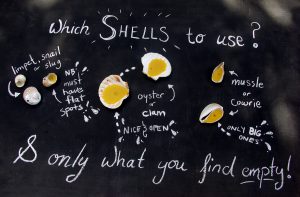 Which SHELLS to use?
limpet, snail
or slug
NB
must
have
flat
spots
oyster
or
clam
NICE & OPEN
mussle
or
cowrie
ONLY BIG
ONES
& only what you find empty!